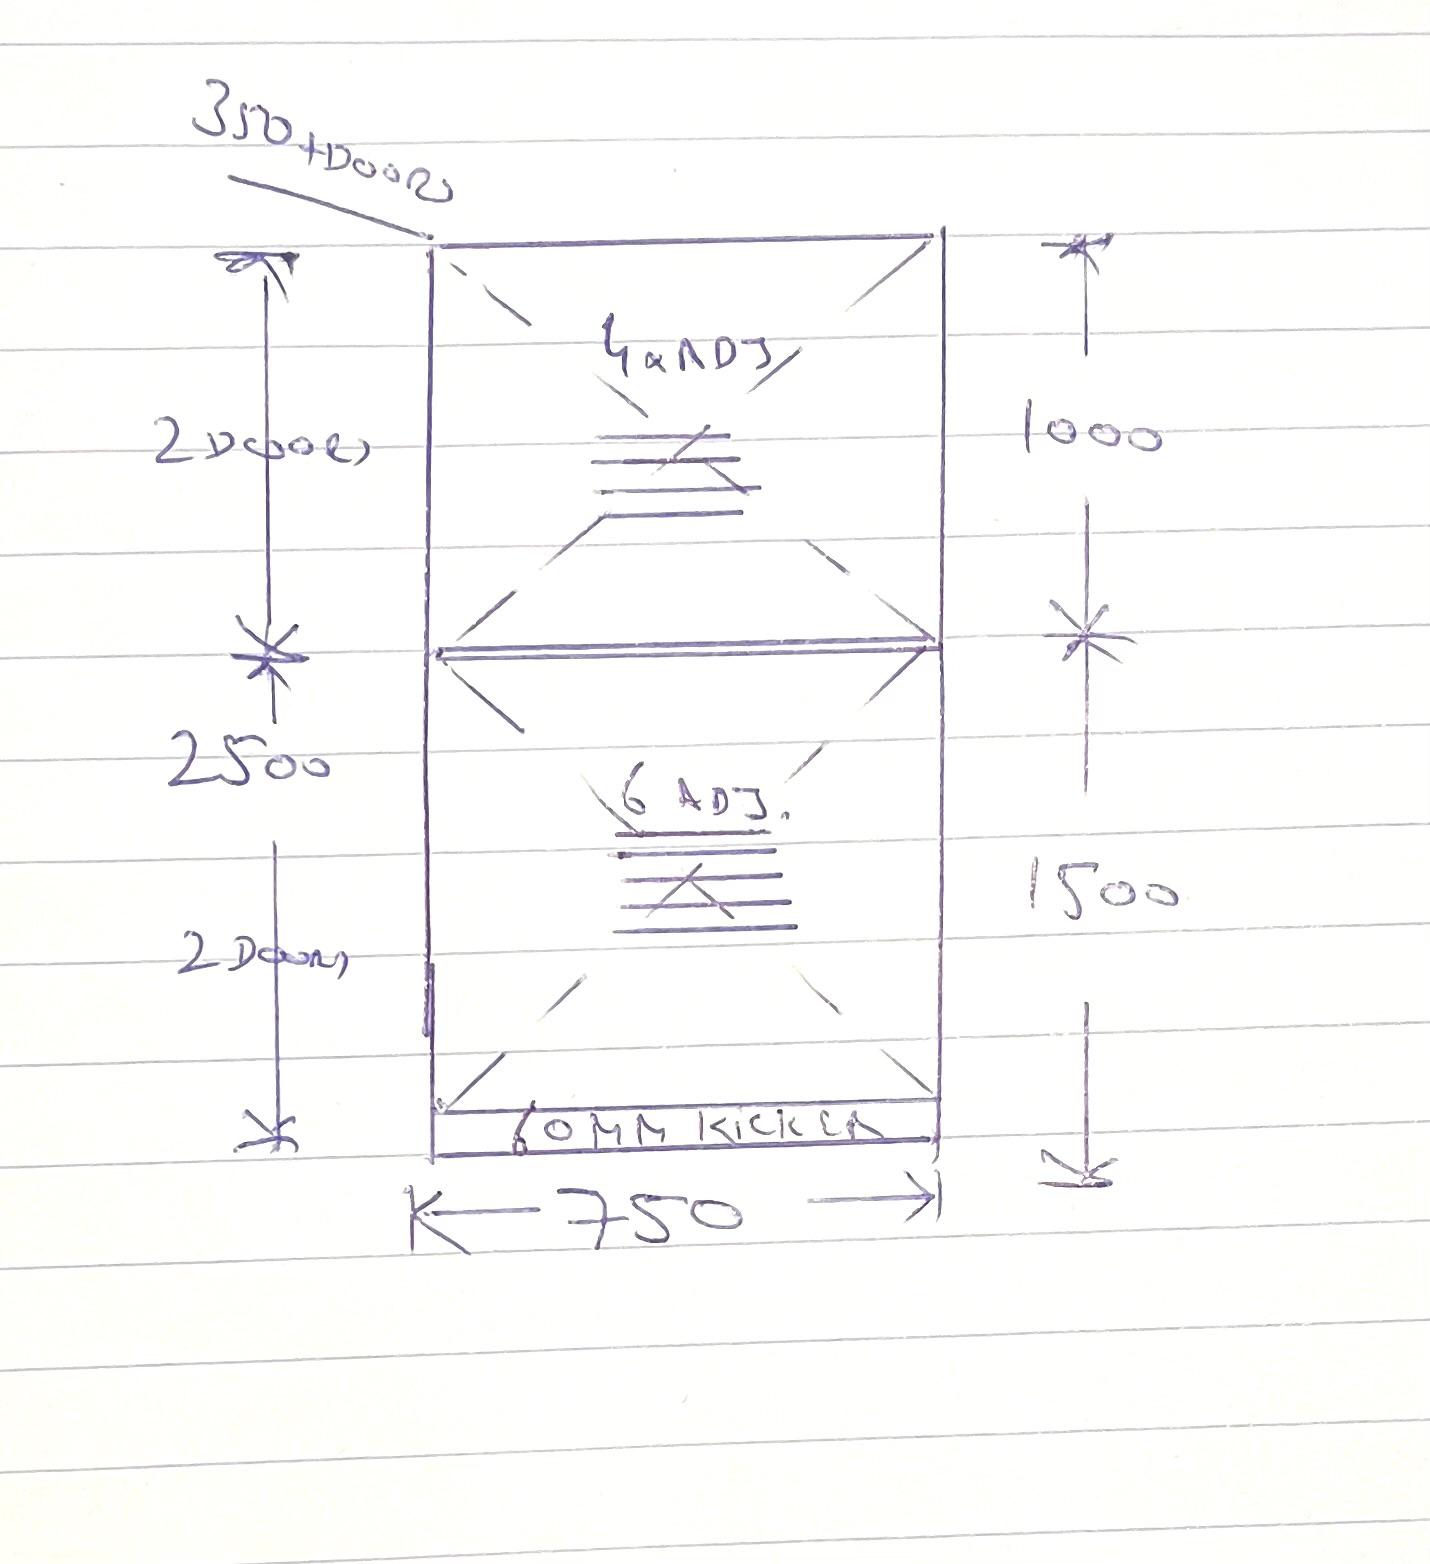 350 + DOORS
4 x ADJ
2 DOORS
1000
2500
6 ADJ.
1500
2 DOORS
60MM KICKER
750